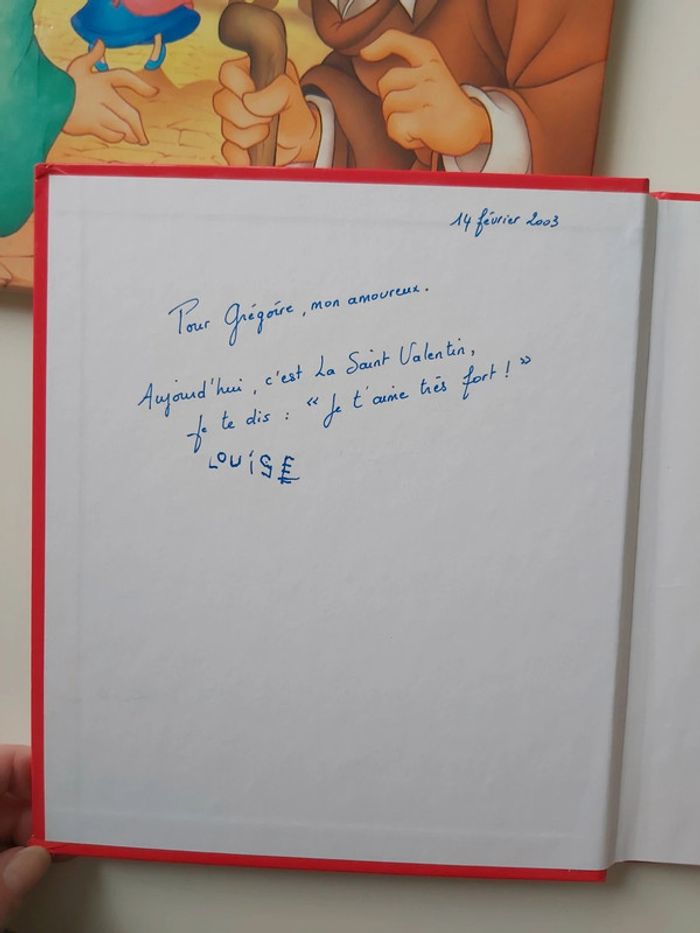 14 février 2003
Pour Grégoire, mon amoureux.
Aujourd'hui, c'est La Saint Valentin,
Je te dis : « Je t'aime très fort ! »
LOUiSE